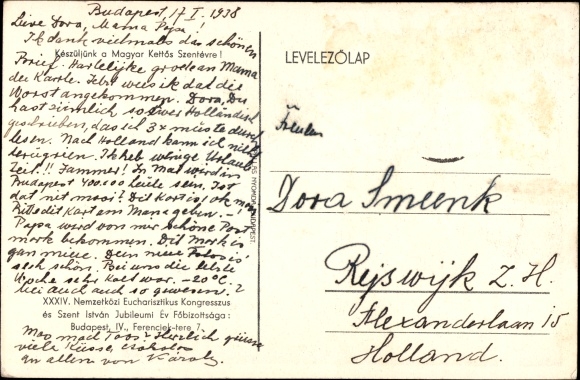 Budapest 17 I. 1938
Lieve Dora, Mama Papa!
Ich dank vielmals das schönen
Készüljünk a Magyar Kettős Szentévre!
Brief. Hartelijke groetean Mama
de Kartle. Jetzt weis ik dat die
Worst angekommen. Dora, Du
hast ziemlich so swer Holländisch
geschrieben, das ich 3x müste durch
lesen. Nach Holland kann ich nicht
terugzien. Ik heb wenige Urlaub
Zeit!!! Jammer! In Mai werd in
Budapest 400.000 leute sein. Ist
dat nit mooi? Dit Kart is ook mooi
Bitte dit Kart am Mama geben. – !
Papa werd von mir schöne Post
mark bekommen. Dit Mark is
gans nieue. Dein neue Fotos is
seeh schön. Bei uns die letste
Woche sehr kalt war. -20°C
bei Auch auch so gewesen?
XXXIV. Nemzetközi Eucharisztikus Kongresszus
és Szent István Jubileumi Év Főbizottsága:
Budapest, IV., Ferenciek-tere 7.
Mao mach Toos? Herzlich grüsse
viele Küsse, csókolos
an allem von Károly
NYOMDA BUDAPEST
LEVELEZŐLAP
Freulen
Dora Smeenk
Rejswijk Z. H.
Alexanderlaan 15
Holland.